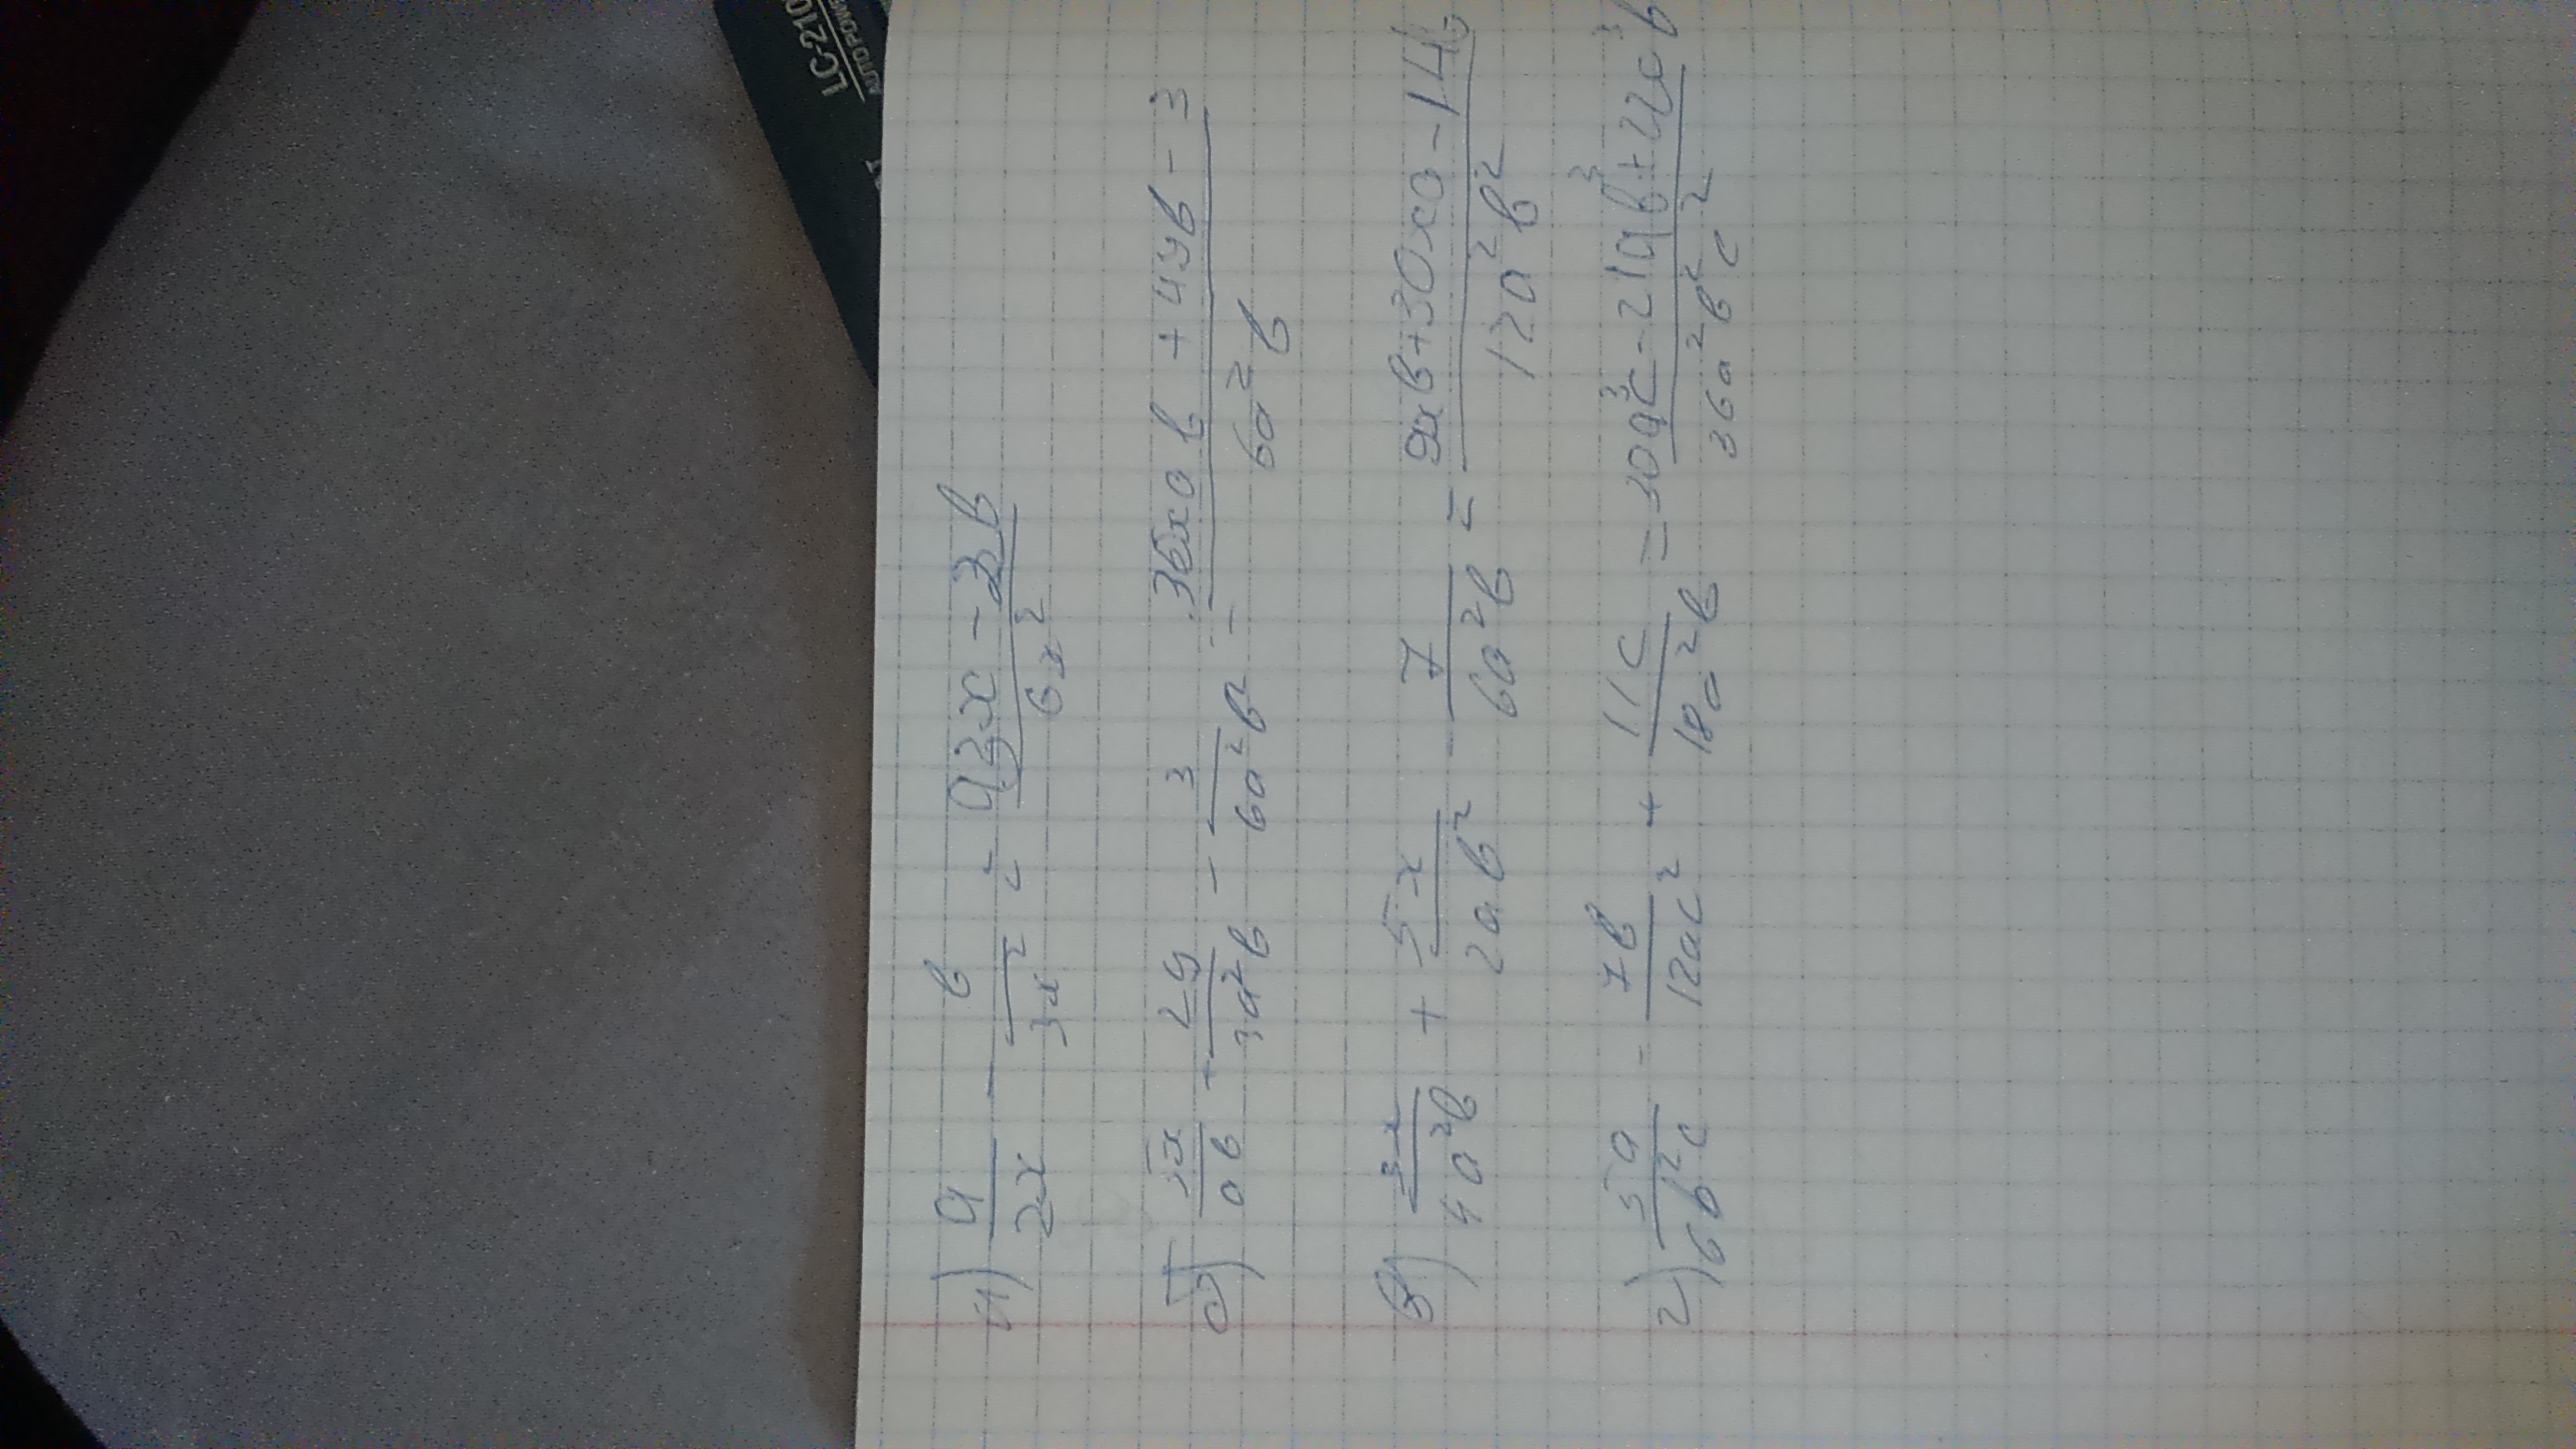 LC-210
AUTO POWE
а) a/2x - b/3x² = a3x - 3b/6x²
б) 5x/ab + 2y/3a²b - 3/6a²b² = 36xab + 4yb - 3/6a²b
в) 3x/4a²b + 5x/2ab² - 7/6a²b = 9xb+30xa-14b/12a²b²
г) 5a/6b²c - 7b/12ac² + 11c/18a²b = 30a³c-21ab³+22c³b/36a²b²c²